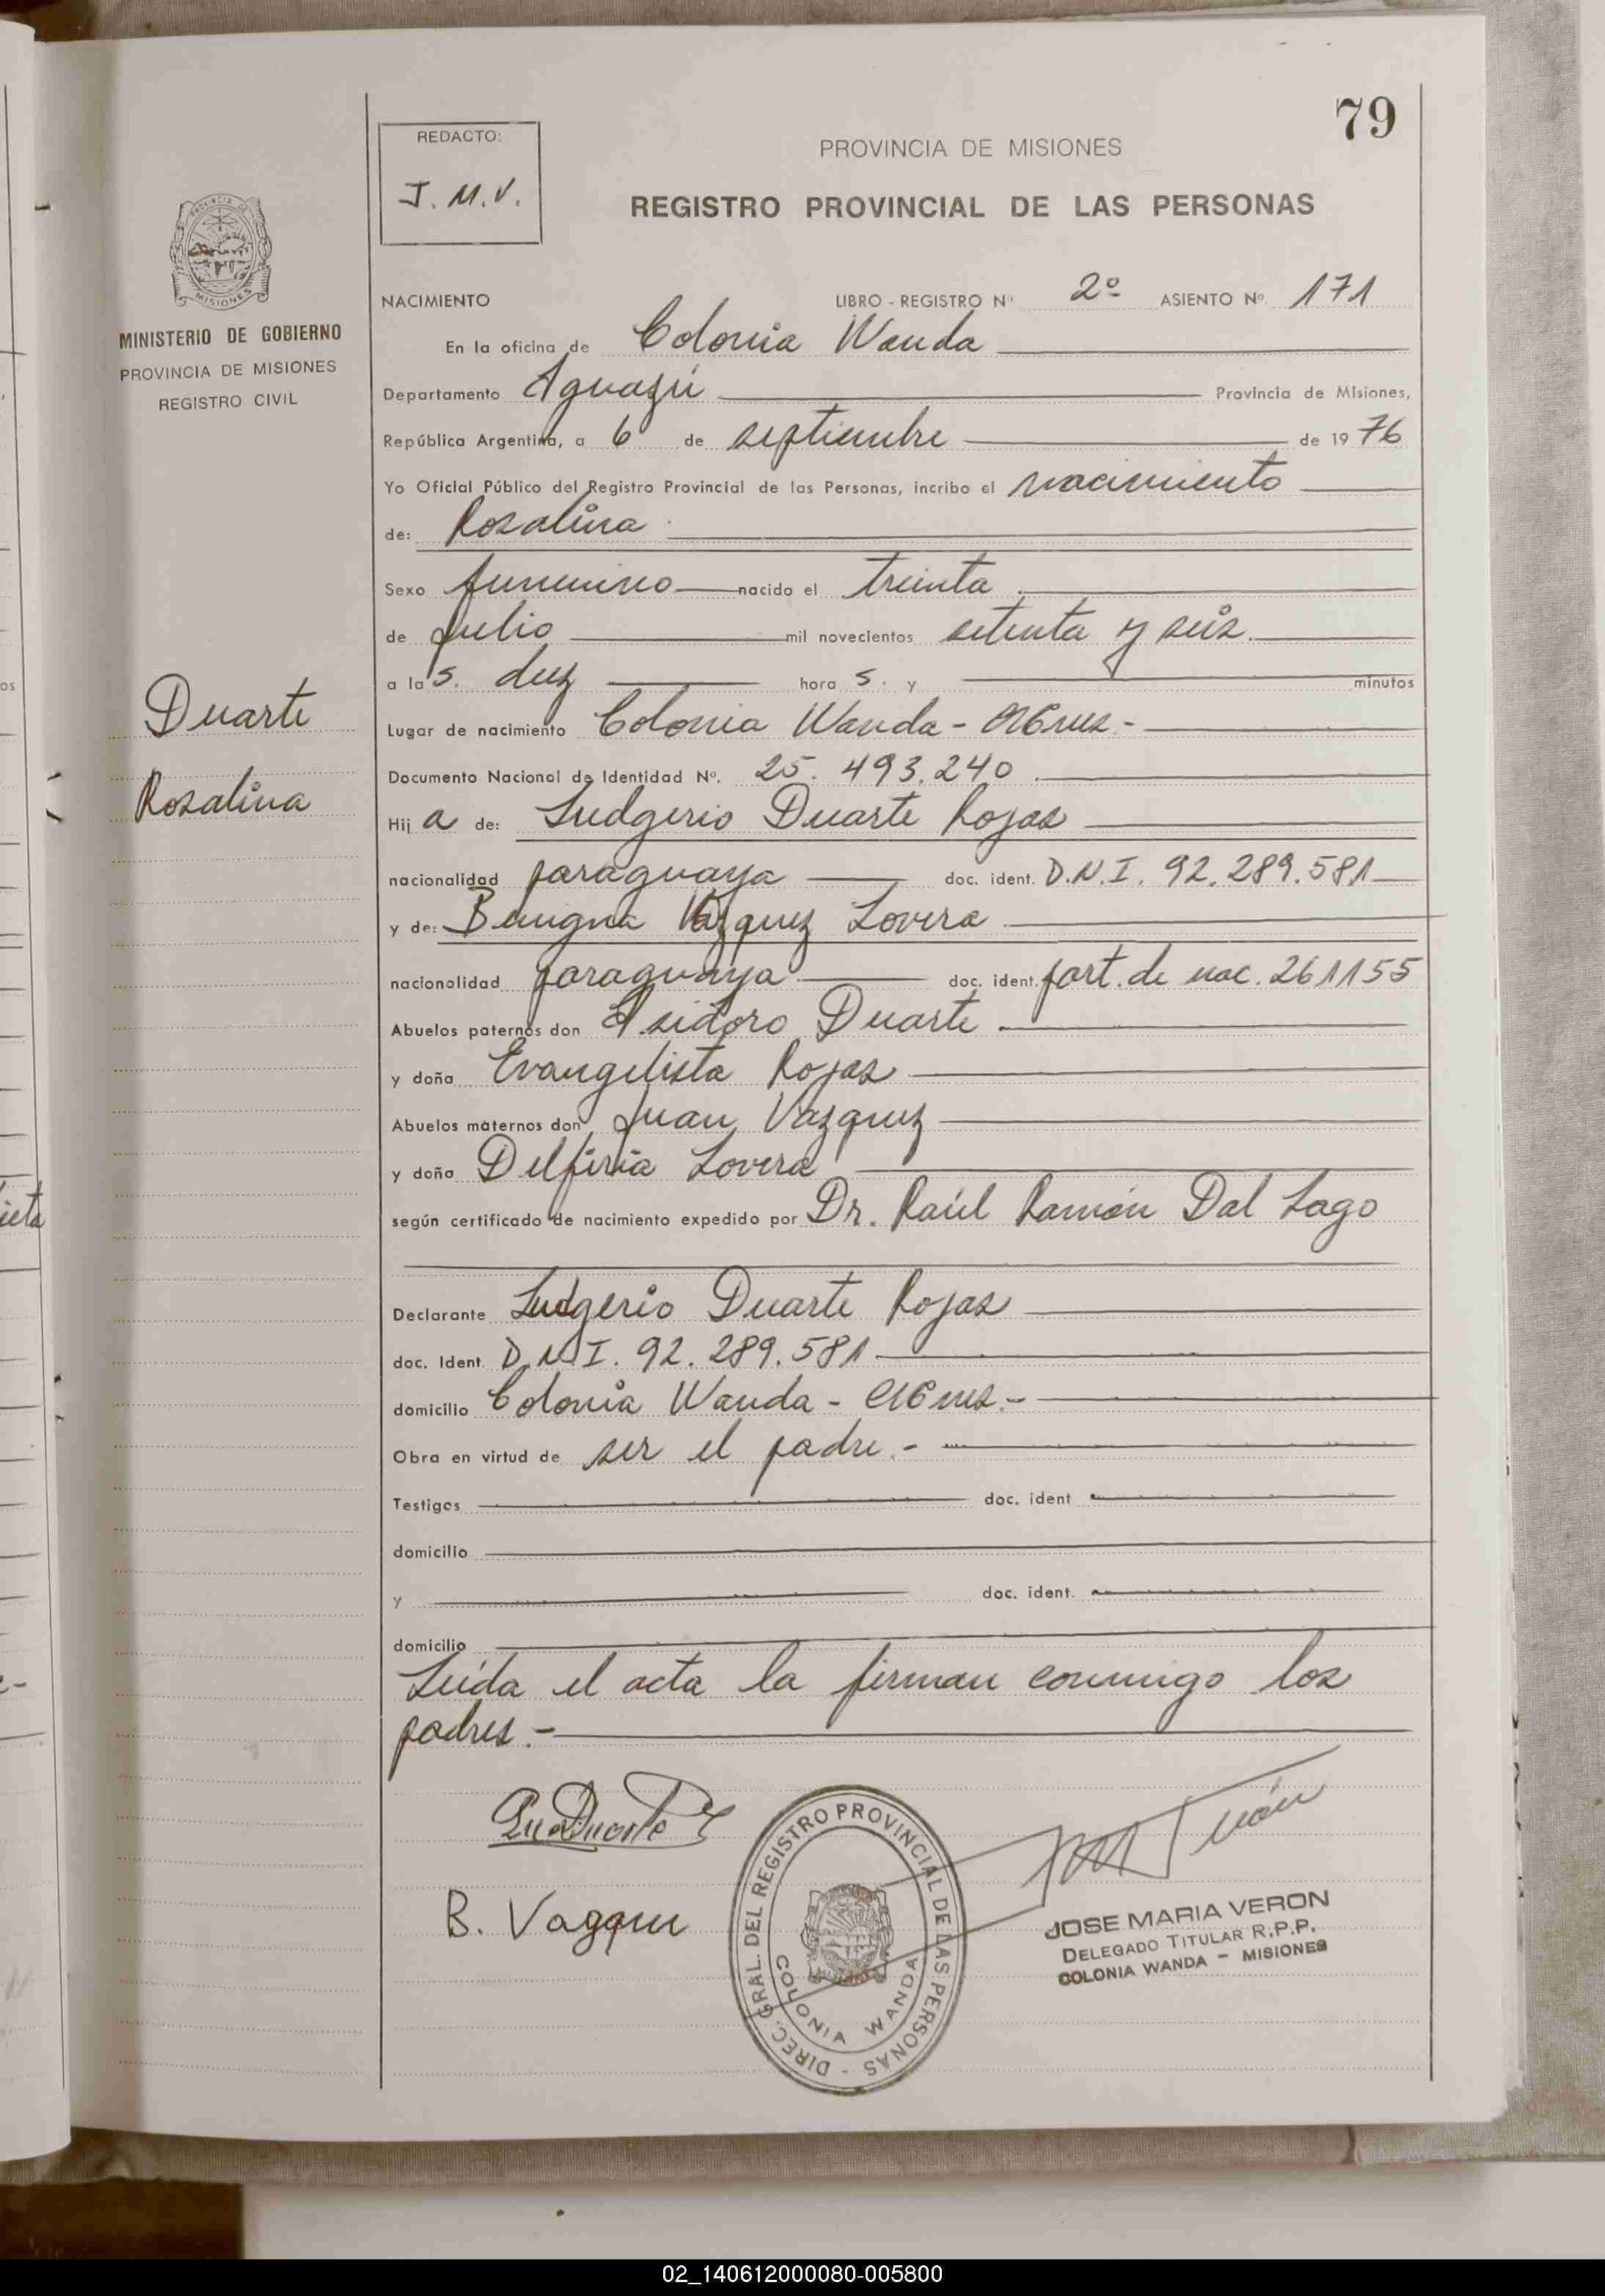 79
REDACTO:
J. M. V.
PROVINCIA DE MISIONES
REGISTRO PROVINCIAL DE LAS PERSONAS
MISIONES
MINISTERIO DE GOBIERNO
PROVINCIA DE MISIONES
REGISTRO CIVIL
Duarte
Rosalina
NACIMIENTO LIBRO - REGISTRO Nº 2º ASIENTO Nº 171
En la oficina de Colonia Wanda
Departamento Iguazú Provincia de Misiones,
República Argentina, a 6 de septiembre de 1976
Yo Oficial Público del Registro Provincial de las Personas, incribo el nacimiento
de: Rosalina
Sexo femenino nacido el treinta
de julio mil novecientos setenta y seis
a las. diez hora s. y minutos
Lugar de nacimiento Colonia Wanda - Mnes.-
Documento Nacional de Identidad Nº. 25.493.240
Hija de: Ludgerio Duarte Rojas
nacionalidad paraguaya doc. ident. D.N.I. 92.289.581
y de: Benigna Vázquez Lovera
nacionalidad paraguaya doc. ident. part. de nac. 261155
Abuelos paternos don Isidoro Duarte
y doña Evangelista Rojas
Abuelos maternos don Juan Vázquez
y doña Delfina Lovera
según certificado de nacimiento expedido por Dr. Raúl Ramón Dal Lago
Declarante Ludgerio Duarte Rojas
doc. Ident. D.N.I. 92.289.581
domicilio Colonia Wanda - Mnes.-
Obra en virtud de ser el padre.-
Testigos doc. ident
domicilio
y doc. ident.
domicilio
Leída el acta la firman conmigo los
padres.-
B. Vazquez
DIREC. GRAL. DEL REGISTRO PROVINCIAL DE LAS PERSONAS -
COLONIA WANDA
JOSE MARIA VERON
DELEGADO TITULAR R.P.P.
COLONIA WANDA - MISIONES
02_140612000080-005800